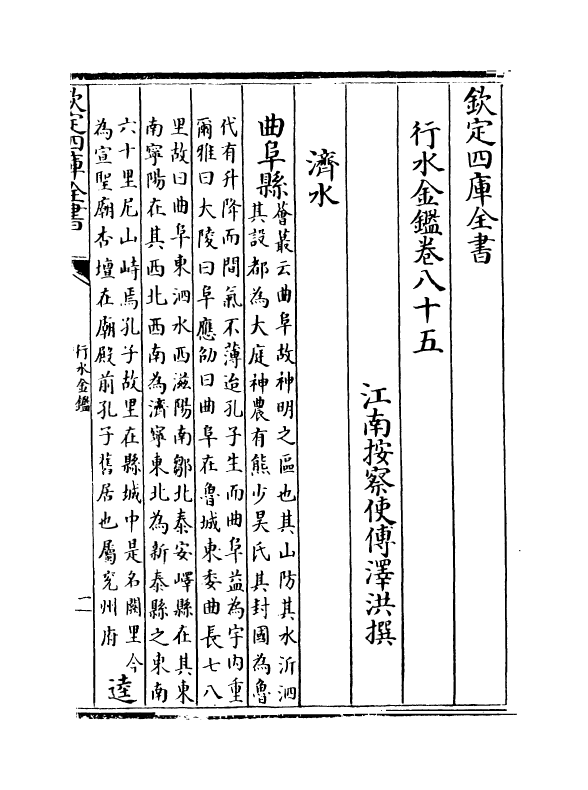 欽定四庫全書
行水金鑑卷八十五
江南按察使傅澤洪撰
濟水
曲阜縣
薈叢云曲阜故神明之區也其山防其水沂泗
其設都為大庭神農有熊少昊氏其封國為魯
代有升降而間氣不薄迨孔子生而曲阜益為宇内重
爾雅曰大陵曰阜應劭曰曲阜在魯城東委曲長七八
里故曰曲阜東泗水西滋陽南鄒北泰安嶧縣在其東
南寧陽在其西北西南為濟寧東北為新泰縣之東南
六十里尼山峙焉孔子故里在縣城中是名闕里今
為宣聖廟杏壇在廟殿前孔子舊居也屬兖州府
逵
欽定四庫全書
行水金鑑
一